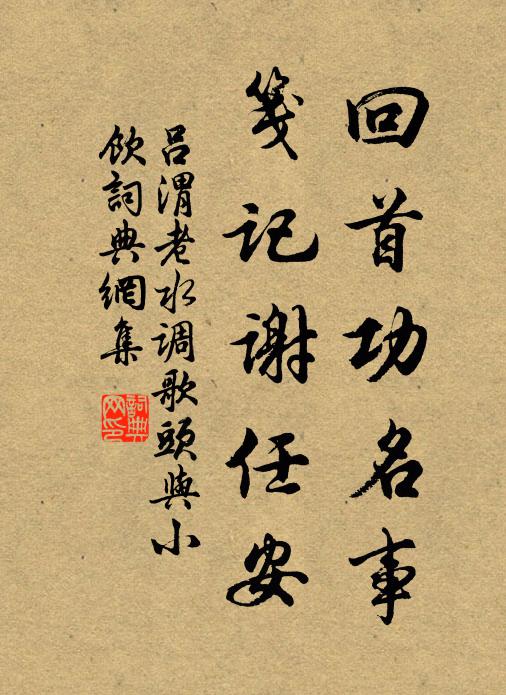 回首功名事
笺记谢任安
吕渭老水调歌頭與小
飲詞典網集
詞典
网印